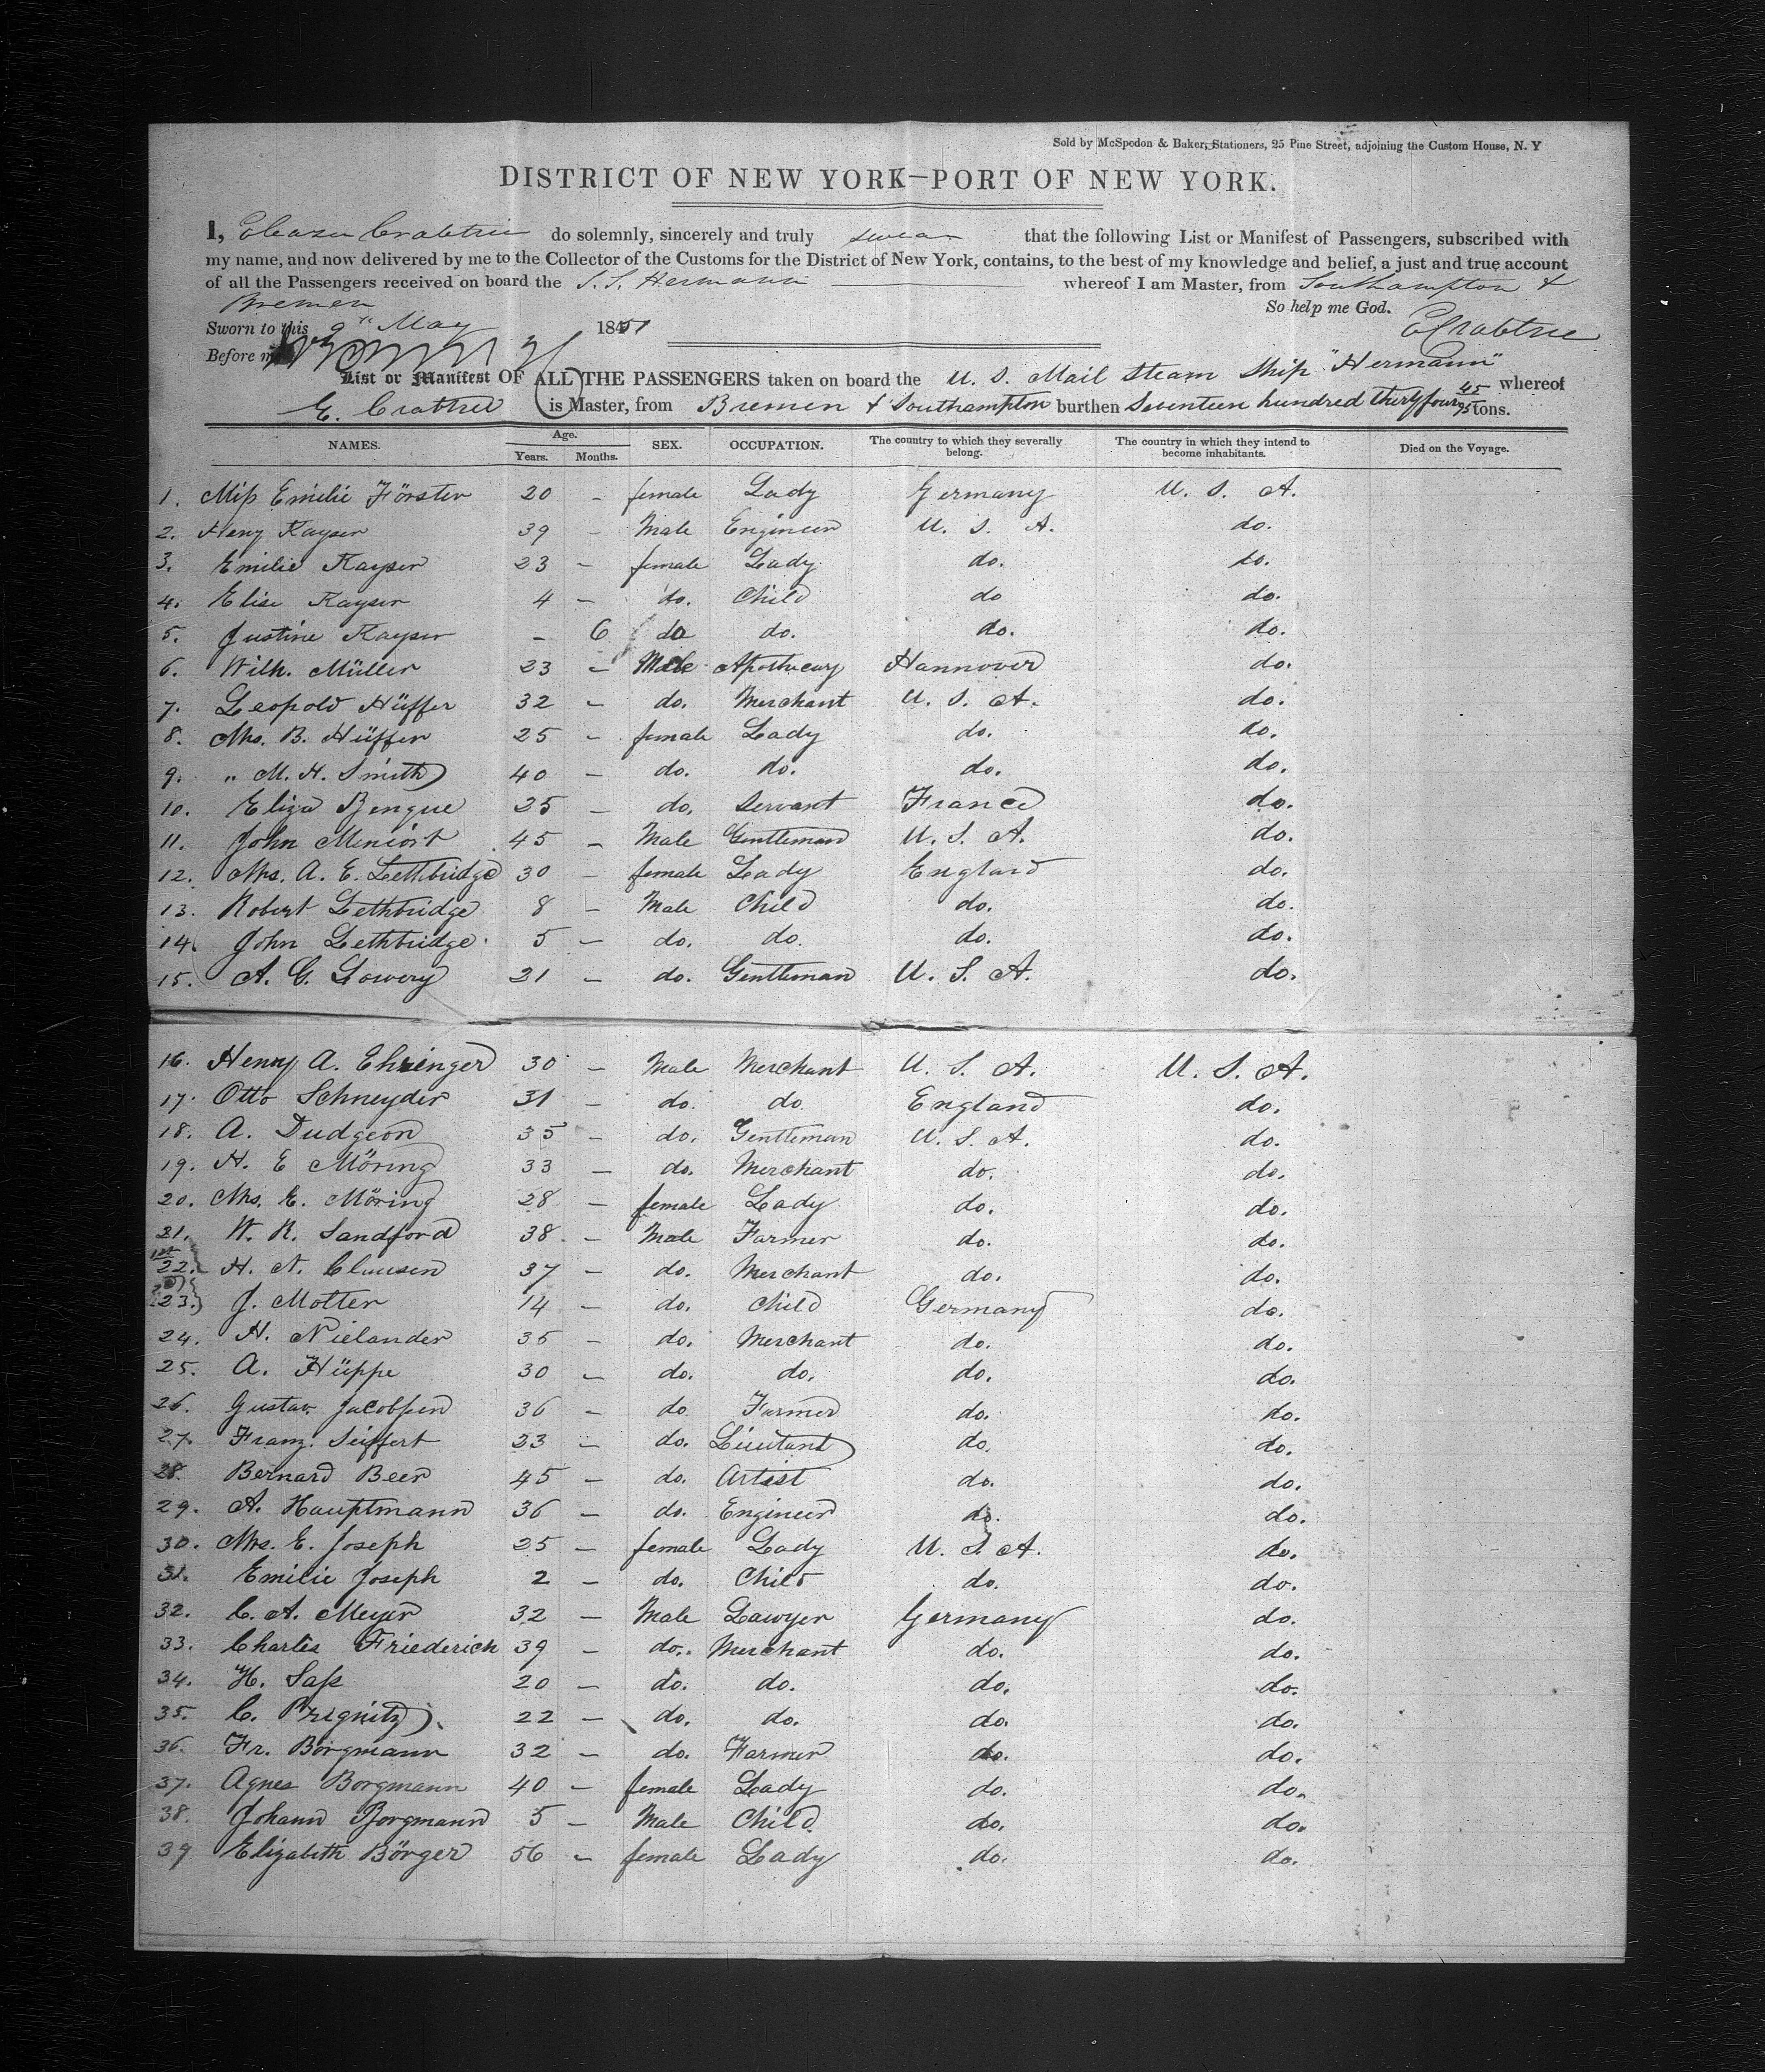 Sold by McSpedon & Baker, Stationers, 25 Pine Street, adjoining the Custom House, N. Y
DISTRICT OF NEW YORK—PORT OF NEW YORK.
I, Eleazer Crabtree do solemnly, sincerely and truly swear that the following List or Manifest of Passengers, subscribed with
my name, and now delivered by me to the Collector of the Customs for the District of New York, contains, to the best of my knowledge and belief, a just and true account
of all the Passengers received on board the S. S. Hermann whereof I am Master, from Southampton &
Bremen So help me God.
Sworn to this 9th May 1851 ECrabtree
Before me
List or Manifest OF ALL THE PASSENGERS taken on board the U. S. Mail Steam Ship "Hermann" whereof
E. Crabtree is Master, from Bremen & Southampton burthen Seventeen hundred thirty four 45/95 tons.
NAMES. Age. Years. Months. SEX. OCCUPATION. The country to which they severally belong. The country in which they intend to become inhabitants. Died on the Voyage.
1. Miss Emilie Förster 20 – female Lady Germany U. S. A.
2. Heny Kayser 39 – Male Engineer U. S. A. do.
3. Emilie Kayser 23 – female Lady do. do.
4. Elise Kayser 4 – do. Child do do.
5. Justine Kayser – 6 do do. do. do.
6. Wilh. Müller 23 – Male Apothecary Hannover do.
7. Leopold Hüffer 32 – do. Merchant U. S. A. do.
8. Mrs. B. Hüffer 25 – female Lady do. do.
9. " M. H. Smith 40 – do. do. do. do.
10. Eliza Bengue 25 – do. Servant France do.
11. John 45 – Male Gentleman U. S. A. do.
12. Mrs. A. E. Lethbridge 30 – female Lady England do.
13. Robert Lethbridge 8 – Male Child do. do.
14. John Lethbridge 5 – do. do. do. do.
15. A. G. Lowery 21 – do. Gentleman U. S. A. do.
16. Henry A. Ehringer 30 – Male Merchant U. S. A. U. S. A.
17. Otto Schneyder 31 – do. do. England do.
18. A. Dudgeon 35 – do. Gentleman U. S. A. do.
19. H. E Möring 33 – do. Merchant do. do.
20. Mrs. E. Möring 28 – female Lady do. do.
21. W. R. Sandford 38 – Male Farmer do. do.
22. H. A. Clausen 37 – do. Merchant do. do.
23. J. Motter 14 – do. Child Germany do.
24. H. Nielander 35 – do. Merchant do. do.
25. A. Hüppe 30 – do. do. do. do.
26. Gustav. Jacobssen 36 – do Farmer do. do.
27. Franz. Seiffert 23 – do. Lieutant do. do.
28. Bernard Beer 45 – do. Artist do. do.
29. A. Hauptmann 36 – do. Engineer do. do.
30. Mrs. E. Joseph 25 – female Lady U. S. A. do.
31. Emilie Joseph 2 – do. Child do. do.
32. C. A. Meyer 32 – Male Lawyer Germany do.
33. Charles Friederich 39 – do. Merchant do. do.
34. H. Sass 20 – do. do. do. do.
35. C. Prignitz 22 – do. do. do. do.
36. Fr. Borgmann 32 – do. Farmer do. do.
37. Agnes Borgmann 40 – female Lady do. do.
38. Johann Borgmann 5 – Male Child do. do.
39 Elizabeth Börger 56 – female Lady do. do.